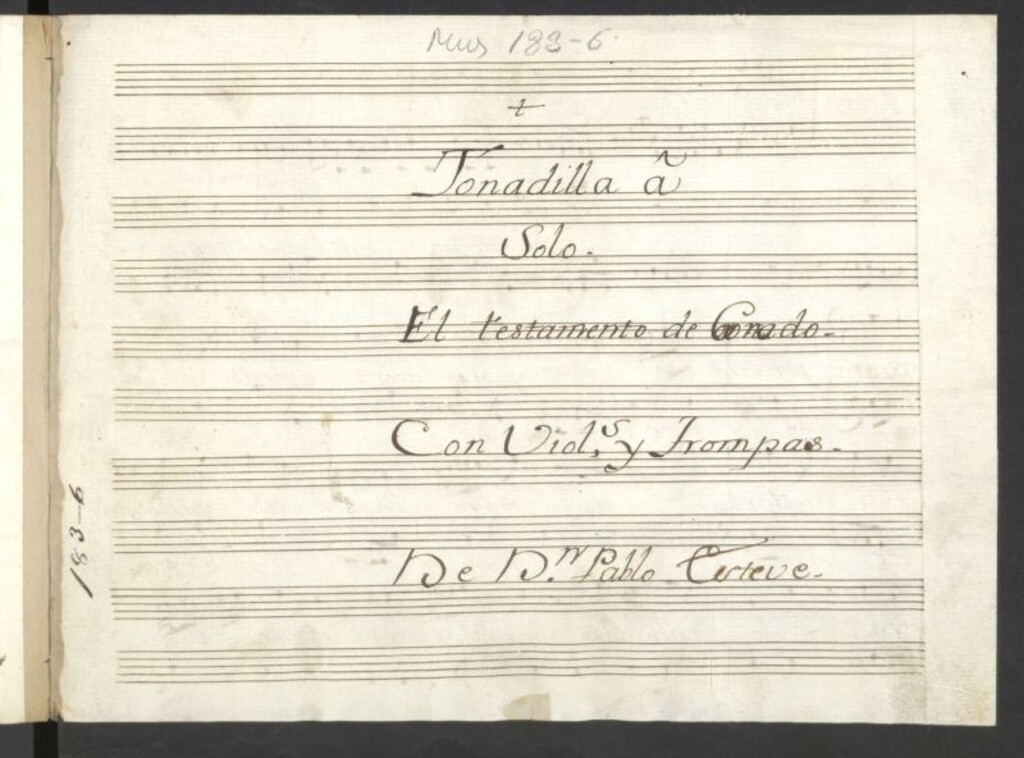 Mus 183-6
+
Tonadilla ã
Solo.
El testamento de
Con Viol.s y Trompas.
De D.n Pablo Esteve.
183-6